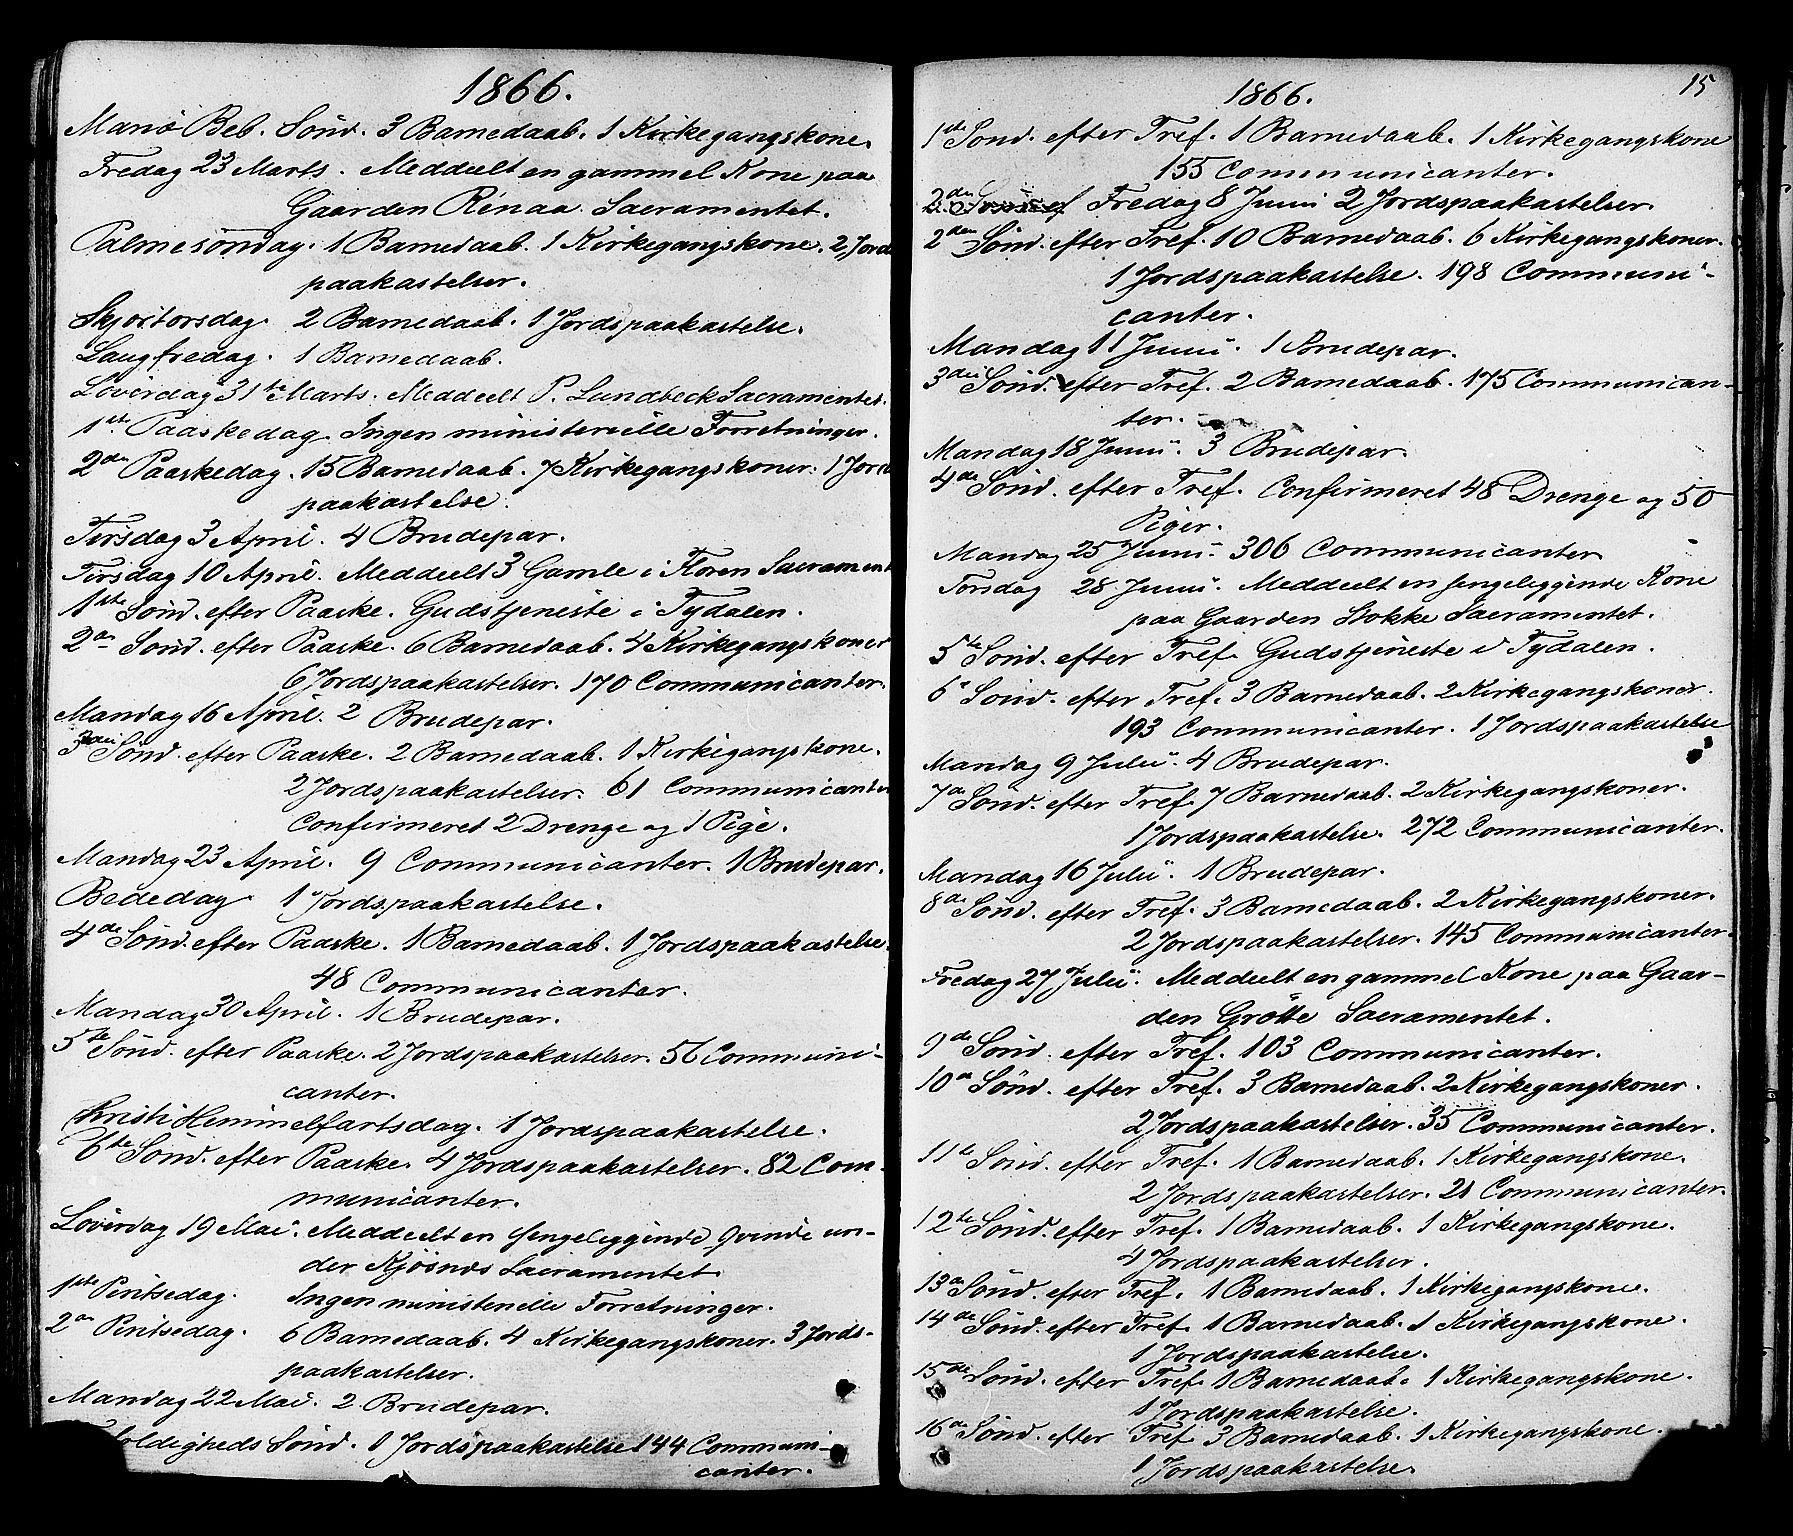 1866.
Mariæ Beb. Sönd. 3 Barnedaab. 1 Kirkegangskone.
Fredag 23 Marts. Meddeelt en gammel Kone paa
Gaarden Renaa Sacramentet.
Palmesöndag. 1 Barnedaab. 1 Kirkegangskone. 2 Jords
paakastelser.
Skjærtorsdag. 2 Barnedaab. 1 Jordspaakastelse.
Langfredag. 1 Barnedaab.
Löverdag 31te Marts. Meddeelt P. Lundbeck Sacramentet.
1ste Paaskedag. Ingen ministerielle Forretninger.
2den Paaskedag. 15 Barnedaab. 7 Kirkegangskoner. 1 Jords
paakastelse.
Tirsdag 3 April. 4 Brudepar.
Tirsdag 10 April. Meddeelt 3 Gamle i Floren Sacrament
1ste Sönd. efter Paaske. Gudstjeneste i Tydalen.
2den Sönd. efter Paaske. 6 Barnedaab. 4 Kirkegangskoner
6 Jordspaakastelser. 170 Communicanter.
Mandag 16 April. 2 Brudepar.
3die Sönd. efter Paaske. 2 Barnedaab. 1 Kirkegangskone.
2 Jordspaakastelser. 61 Communicanter
Confirmeret 2 Drenge og 1 Pige.
Mandag 23 April. 9 Communicanter. 1 Brudepar.
Bededag 1 Jordspaakastelse.
4de Sönd. efter Paaske. 1 Barnedaab. 1 Jordspaakastelse.
48 Communicanter.
Mandag 30 April. 1 Brudepar.
5te Sönd. efter Paaske. 2 Jordspaakastelser. 56 Communi-
canter.
Christi Himmelfartsdag. 1 Jordspaakastelse.
6te Sönd. efter Paaske. 4 Jordspaakastelser. 82 Com-
municanter.
Löverdag 19 Mai. Meddeelt en sengeliggende Qvinde un-
der Kjösnæs Sacramentet
1ste Pintsedag. Ingen ministerielle Forretninger.
2den Pintsedag. 6 Barnedaab. 4 Kirkegangskoner. 3 Jords-
paakastelser.
Mandag 22 Mai. 2 Brudepar.
foldigheds Sönd. 1 Jordspaakastelse 144 Communi-
canter.
1866.
15
1ste Sönd. efter Tref. 1 Barnedaab. 1 Kirkegangskone
155 Communicanter.
Fredag 8 Junii 2 Jordspaakastelser.
2den Sönd. efter Tref. 10 Barnedaab. 6 Kirkegangskoner.
1 Jordspaakastelse. 198 Communi-
canter.
Mandag 11 Junii. 1 Brudepar.
3die Sönd. efter Tref. 2 Barnedaab. 175 Communican-
ter.
Mandag 18 Junii. 3 Brudepar.
4de Sönd. efter Tref. Confirmeret 48 Drenge og 50
Piger.
Mandag 25 Junii. 306 Communicanter
Torsdag 28 Junii. Meddeelt en sengeliggende Kone
paa Gaarden Stokke Sacramentet.
5te Sönd. efter Tref. Gudstjeneste i Tydalen.
6te Sönd. efter Tref. 3 Barnedaab. 2 Kirkegangskoner.
193 Communicanter. 1 Jordspaakastelse
Mandag 9 Julii. 4 Brudepar.
7de Sönd. efter Tref. 7 Barnedaab. 2 Kirkegangskoner.
1 Jordspaakastelse. 272 Communicanter.
Mandag 16 Julii. 1 Brudepar.
8de Sönd. efter Tref. 3 Barnedaab. 2 Kirkegangskoner.
2 Jordspaakastelser. 145 Communicanter.
Fredag 27 Julii. Meddeelt en gammel Kone paa Gaar-
den Grötte Sacramentet.
9de Sönd. efter Tref. 103 Communicanter.
10de Sönd. efter Tref. 3 Barnedaab. 2 Kirkegangskoner.
2 Jordspaakastelser. 35 Communicanter.
11te Sönd. efter Tref. 1 Barnedaab. 1 Kirkegangskone.
2 Jordspaakastelser. 21 Communicanter.
12te Sönd. efter Tref. 1 Barnedaab. 1 Kirkegangskone.
4 Jordspaakastelser.
13de Sönd. efter Tref. 1 Barnedaab. 1 Kirkegangskone.
14de Sönd. efter Tref. 1 Barnedaab. 1 Kirkegangskone.
1 Jordspaakastelse.
15de Sönd. efter Tref. 1 Barnedaab. 1 Kirkegangskone.
1 Jordspaakastelse.
16de Sönd. efter Tref 3 Barnedaab. 1 Kirkegangskone.
1 Jordspaakastelse.